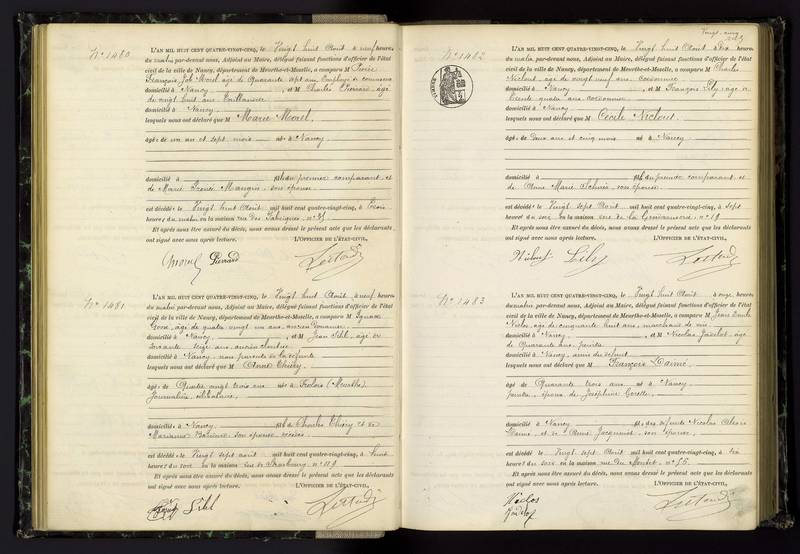 N° 1480
L'AN MIL HUIT CENT QUATRE-VINGT-CINQ, le Vingt huit Août à neuf heures
du matin par-devant nous, Adjoint au Maire, délégué faisant fonctions d'officier de l'état
civil de la ville de Nancy, département de Meurthe-et-Moselle, a comparu M Pierre
François, Job Morel âgé de Quarante sept ans, Employé de commerce
domicilié à Nancy, et M Charles Pierrard, âgé
de vingt huit ans
domicilié à Nancy
lesquels nous ont déclaré que M Marie Morel,
âgé e de un an et sept mois né e à Nancy
domicilié à fille du premier comparant et
de Marie Irénée Mangin, son épouse
est décédé e le Vingt huit Août mil huit cent quatre-vingt-cinq, à trois
heures du matin en la maison rue des Fabriques, n°
Et après nous être assuré du décès, nous avons dressé le présent acte que les déclarants
ont signé avec nous après lecture. L'OFFICIER DE L'ÉTAT-CIVIL,
Morel Pierrard
N° 1481
L'AN MIL HUIT CENT QUATRE-VINGT-CINQ, le Vingt huit Août à neuf heures
du matin par-devant nous, Adjoint au Maire, délégué faisant fonctions d'officier de l'état
civil de la ville de Nancy, département de Meurthe-et-Moselle, a comparu M Ignace
âgé de quatre vingt un ans, ancien Douanier
domicilié à Nancy, et M Jean Sibl, âgé de
soixante seize ans, ancien
domicilié à Nancy, non parents de la défunte
lesquels nous ont déclaré que M Anne Thiéry,
âgé e de Quatre vingt trois ans né e à Frolois (Meurthe)
Journalière, célibataire
domicilié e à Nancy fille de Charles Thiéry et de
Marianne son épouse décédés
est décédé e le Vingt sept août mil huit cent quatre-vingt-cinq, à huit
heures du soir en la maison rue de Strasbourg, n° 119
Et après nous être assuré du décès, nous avons dressé le présent acte que les déclarants
ont signé avec nous après lecture. L'OFFICIER DE L'ÉTAT-CIVIL,
Sibl
Vingt-cinq
N° 1482
L'AN MIL HUIT CENT QUATRE-VINGT-CINQ, le Vingt huit Août à dix heures
du matin par-devant nous, Adjoint au Maire, délégué faisant fonctions d'officier de l'état
civil de la ville de Nancy, département de Meurthe-et-Moselle, a comparu M Charles
Niclout, âgé de vingt neuf ans, cordonnier
domicilié à Nancy, et M François Lily, âgé de
trente quatre ans cordonnier
domicilié à Nancy
lesquels nous ont déclaré que M Cécile Niclout,
âgé e de Deux ans et cinq mois né e à Nancy
domicilié à fille du premier comparant et
de Anne Marie son épouse
est décédé e le Vingt sept Août mil huit cent quatre-vingt-cinq, à sept
heures du soir en la maison rue de la Gendarmerie, n° 19
Et après nous être assuré du décès, nous avons dressé le présent acte que les déclarants
ont signé avec nous après lecture. L'OFFICIER DE L'ÉTAT-CIVIL,
Niclout Lily
N° 1483
L'AN MIL HUIT CENT QUATRE-VINGT-CINQ, le Vingt huit Août à onze heures
du matin par-devant nous, Adjoint au Maire, délégué faisant fonctions d'officier de l'état
civil de la ville de Nancy, département de Meurthe-et-Moselle, a comparu M Jean Emile
Niclos, âgé de cinquante huit ans, marchand de vin
domicilié à Nancy, et M Nicolas âgé
de Quarante ans, peintre
domicilié à Nancy, amis du défunt
lesquels nous ont déclaré que M François
âgé de Quarante trois ans né à Nancy
peintre, époux de Joséphine
domicilié à Nancy fils des défunts Nicolas Alexis
et de Jacquinot, son épouse
est décédé le Vingt sept Août mil huit cent quatre-vingt-cinq, à six
heures du soir en la maison rue du Montet, n°
Et après nous être assuré du décès, nous avons dressé le présent acte que les déclarants
ont signé avec nous après lecture. L'OFFICIER DE L'ÉTAT-CIVIL,
Niclos